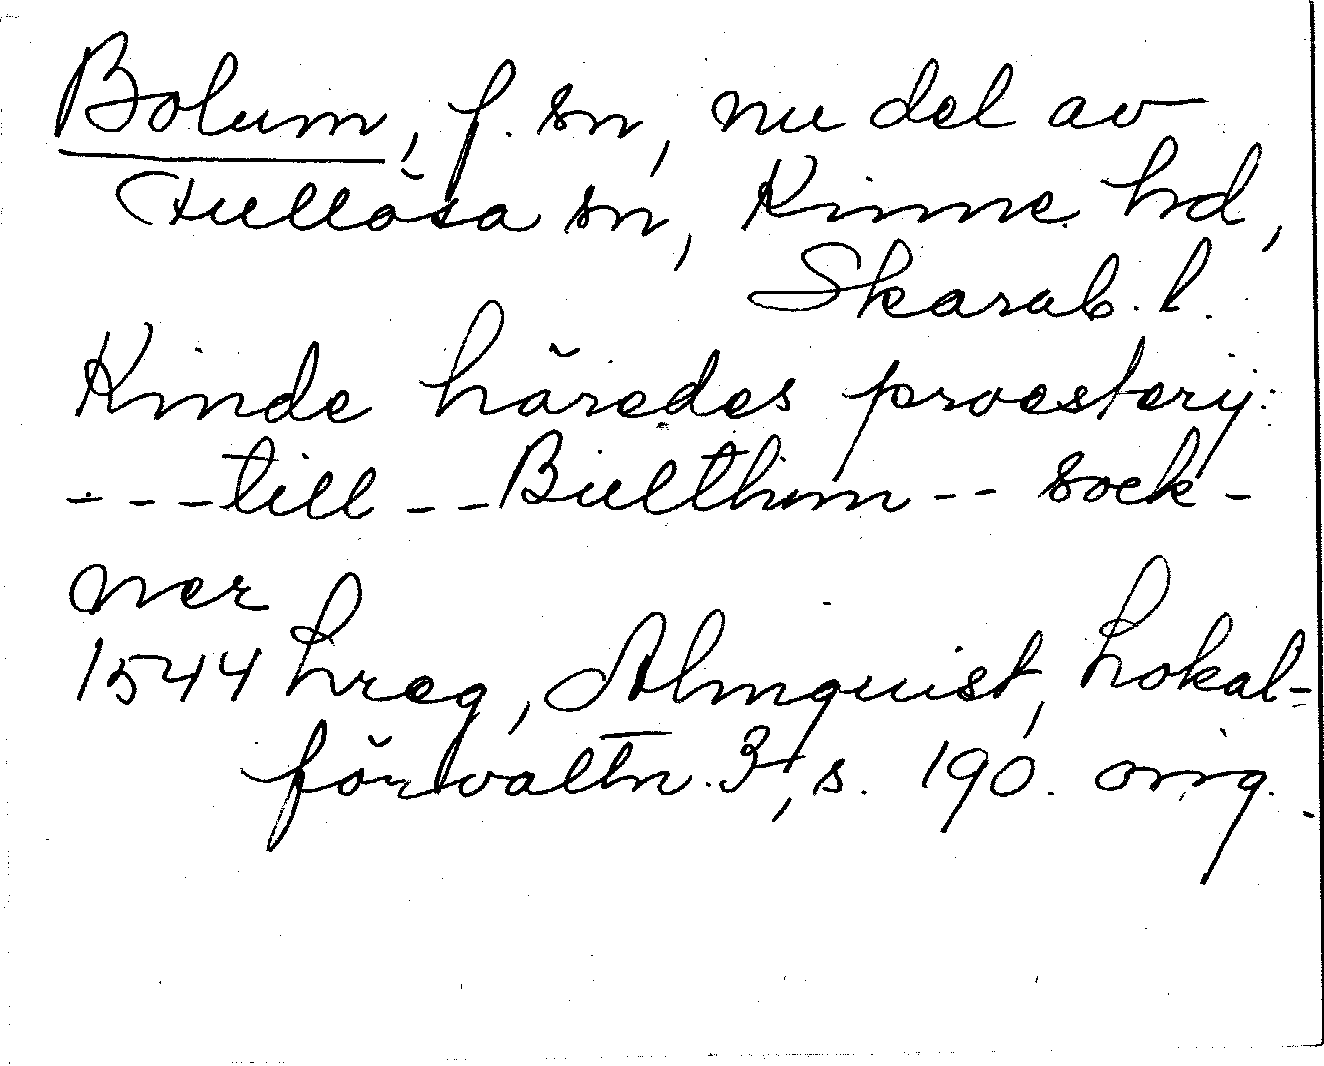 Bolum, f. sn, nu del av
Fullösa sn, Kinne hd,
Skarab. l.
Kinde häredes proestery:
- - - till - - Bulthum - - sock-
ner
1544 Lreg, Almquist, Lokal-
förvaltn. 3, s. 190. orig.